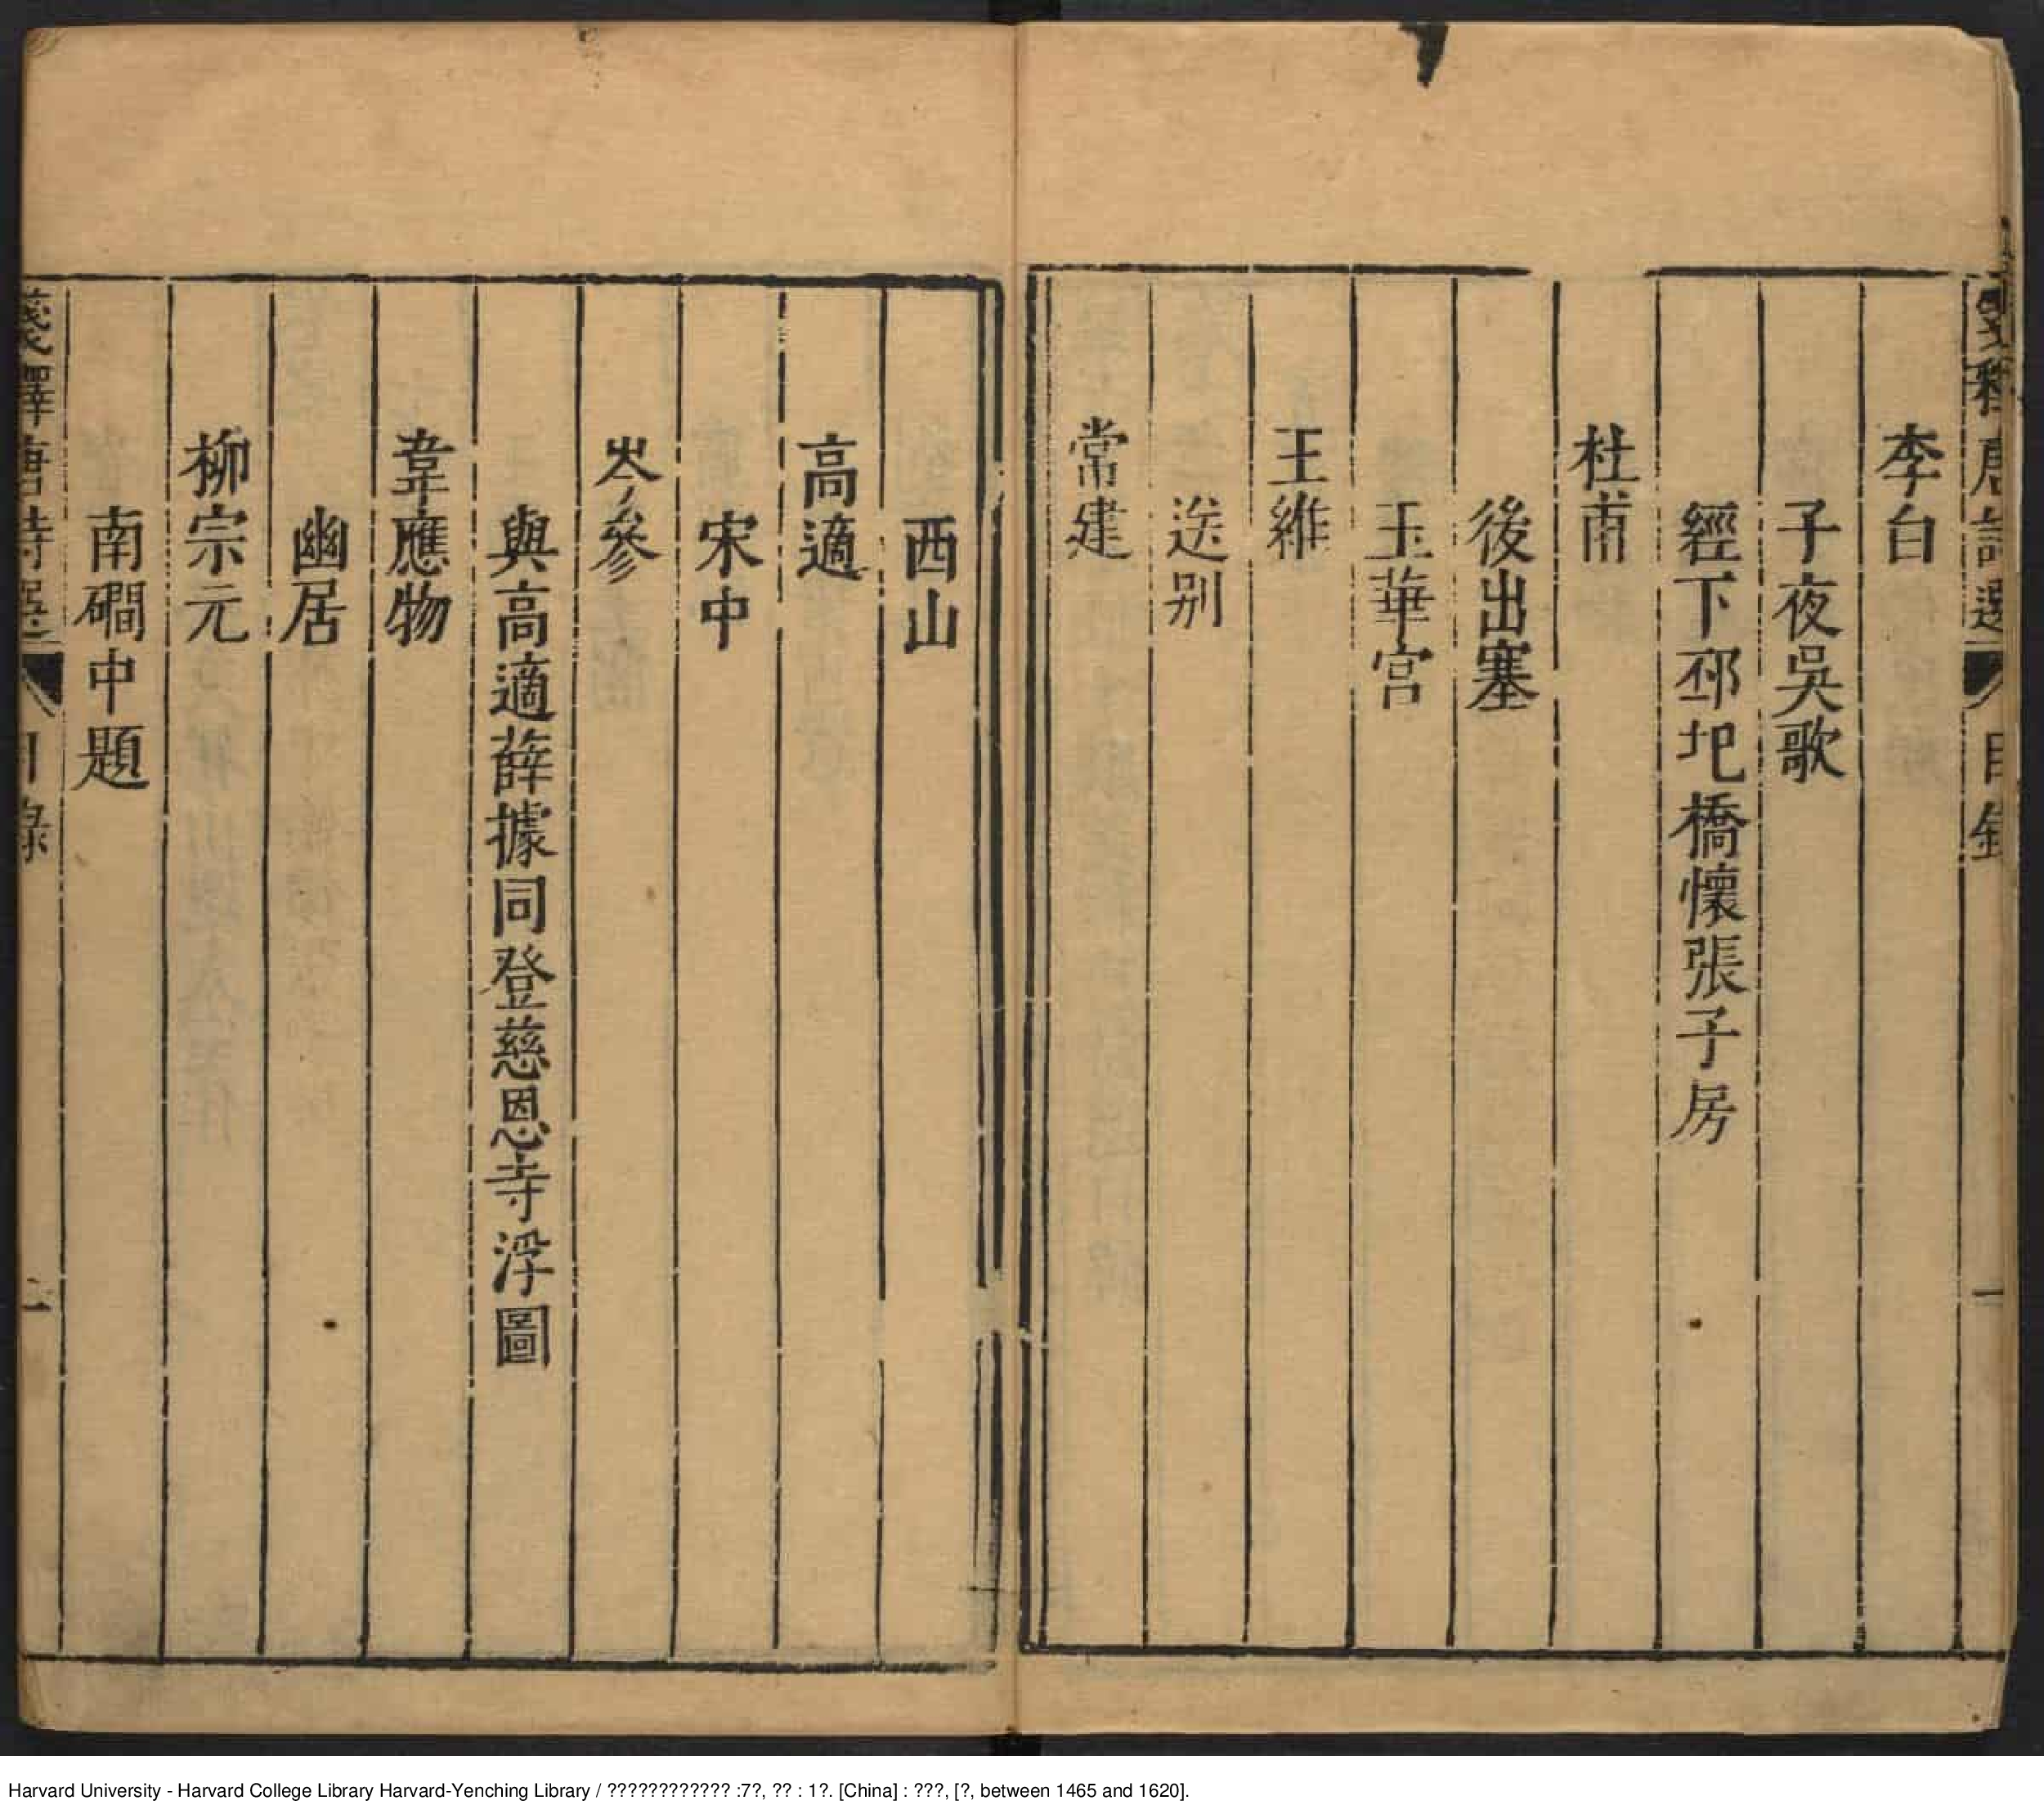 李白
子夜吳歌
經下邳圯橋懷張子房
杜甫
後出塞
玉華宮
王維
送別
常建
西山
高適
宋中
岑參
與高適薛據同登慈恩寺浮圖
韋應物
幽居
柳宗元
南磵中題
箋釋唐詩選
目錄
二
Harvard University - Harvard College Library Harvard-Yenching Library / ???????????? :7?, ?? : 1?. [China] : ???, [?, between 1465 and 1620].